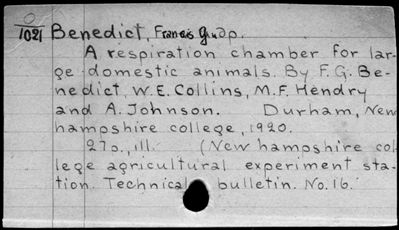 O
1021 Benedict, Francis
A respiration chamber for lar-
ge domestic animals. By F.G. Be-
nedict, W.E. Collins, M.F. Hendry
and A. Johnson. Durham, New
hampshire college, 1920.
27p., ill. (New hampshire col
lege agricultural experiment sta-
tion. Technical bulletin. No. 16.